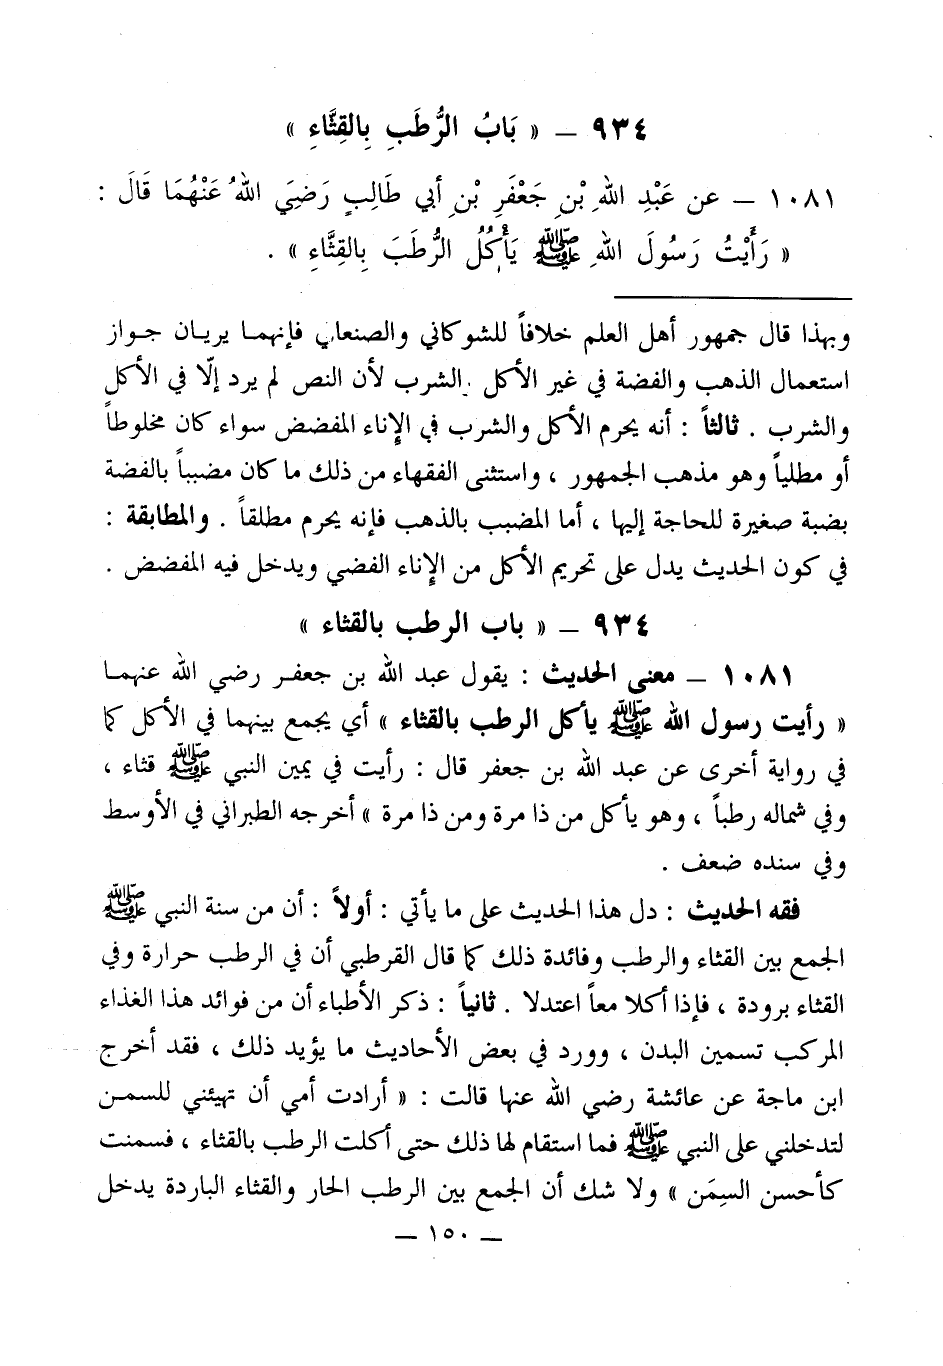 ٩٣٤ – « بَابُ الرُّطَبِ بِالقِثَّاءِ »
١٠٨١ – عن عَبْدِ اللهِ بْنِ جَعْفَرِ بْنِ أبي طَالِبٍ رَضِيَ اللهُ عَنْهُمَا قَالَ :
« رَأَيْتُ رَسُولَ اللهِ ﷺ يَأْكُلُ الرُّطَبَ بِالقِثَّاءِ » .
وبهذا قال جمهور أهل العلم خلافاً للشوكاني والصنعاني فإنهما يريان جواز
استعمال الذهب والفضة في غير الأكل والشرب لأن النص لم يرد إلّا في الأكل
والشرب . ثالثاً : أنه يحرم الأكل والشرب في الإناء المفضض سواء كان مخلوطاً
أو مطلياً وهو مذهب الجمهور ، واستثنى الفقهاء من ذلك ما كان مضبباً بالفضة
بضبة صغيرة للحاجة إليها ، أما المضبب بالذهب فإنه يحرم مطلقاً . والمطابقة :
في كون الحديث يدل على تحريم الأكل من الإناء الفضي ويدخل فيه المفضض .
٩٣٤ – « باب الرطب بالقثاء »
١٠٨١ – معنى الحديث : يقول عبد الله بن جعفر رضي الله عنهما
« رأيت رسول الله ﷺ يأكل الرطب بالقثاء » أي يجمع بينهما في الأكل كما
في رواية أخرى عن عبد الله بن جعفر قال : رأيت في يمين النبي ﷺ قثاء ،
وفي شماله رطباً ، وهو يأكل من ذا مرة ومن ذا مرة » أخرجه الطبراني في الأوسط
وفي سنده ضعف .
فقه الحديث : دل هذا الحديث على ما يأتي : أولاً : أن من سنة النبي ﷺ
الجمع بين القثاء والرطب وفائدة ذلك كما قال القرطبي أن في الرطب حرارة وفي
القثاء برودة ، فإذا أكلا معاً اعتدلا . ثانياً : ذكر الأطباء أن من فوائد هذا الغذاء
المركب تسمين البدن ، وورد في بعض الأحاديث ما يؤيد ذلك ، فقد أخرج
ابن ماجة عن عائشة رضي الله عنها قالت : « أرادت أمي أن تهيئني للسمن
لتدخلني على النبي ﷺ فما استقام لها ذلك حتى أكلت الرطب بالقثاء ، فسمنت
كأحسن السِمَن » ولا شك أن الجمع بين الرطب الحار والقثاء الباردة يدخل
– ١٥٠ –